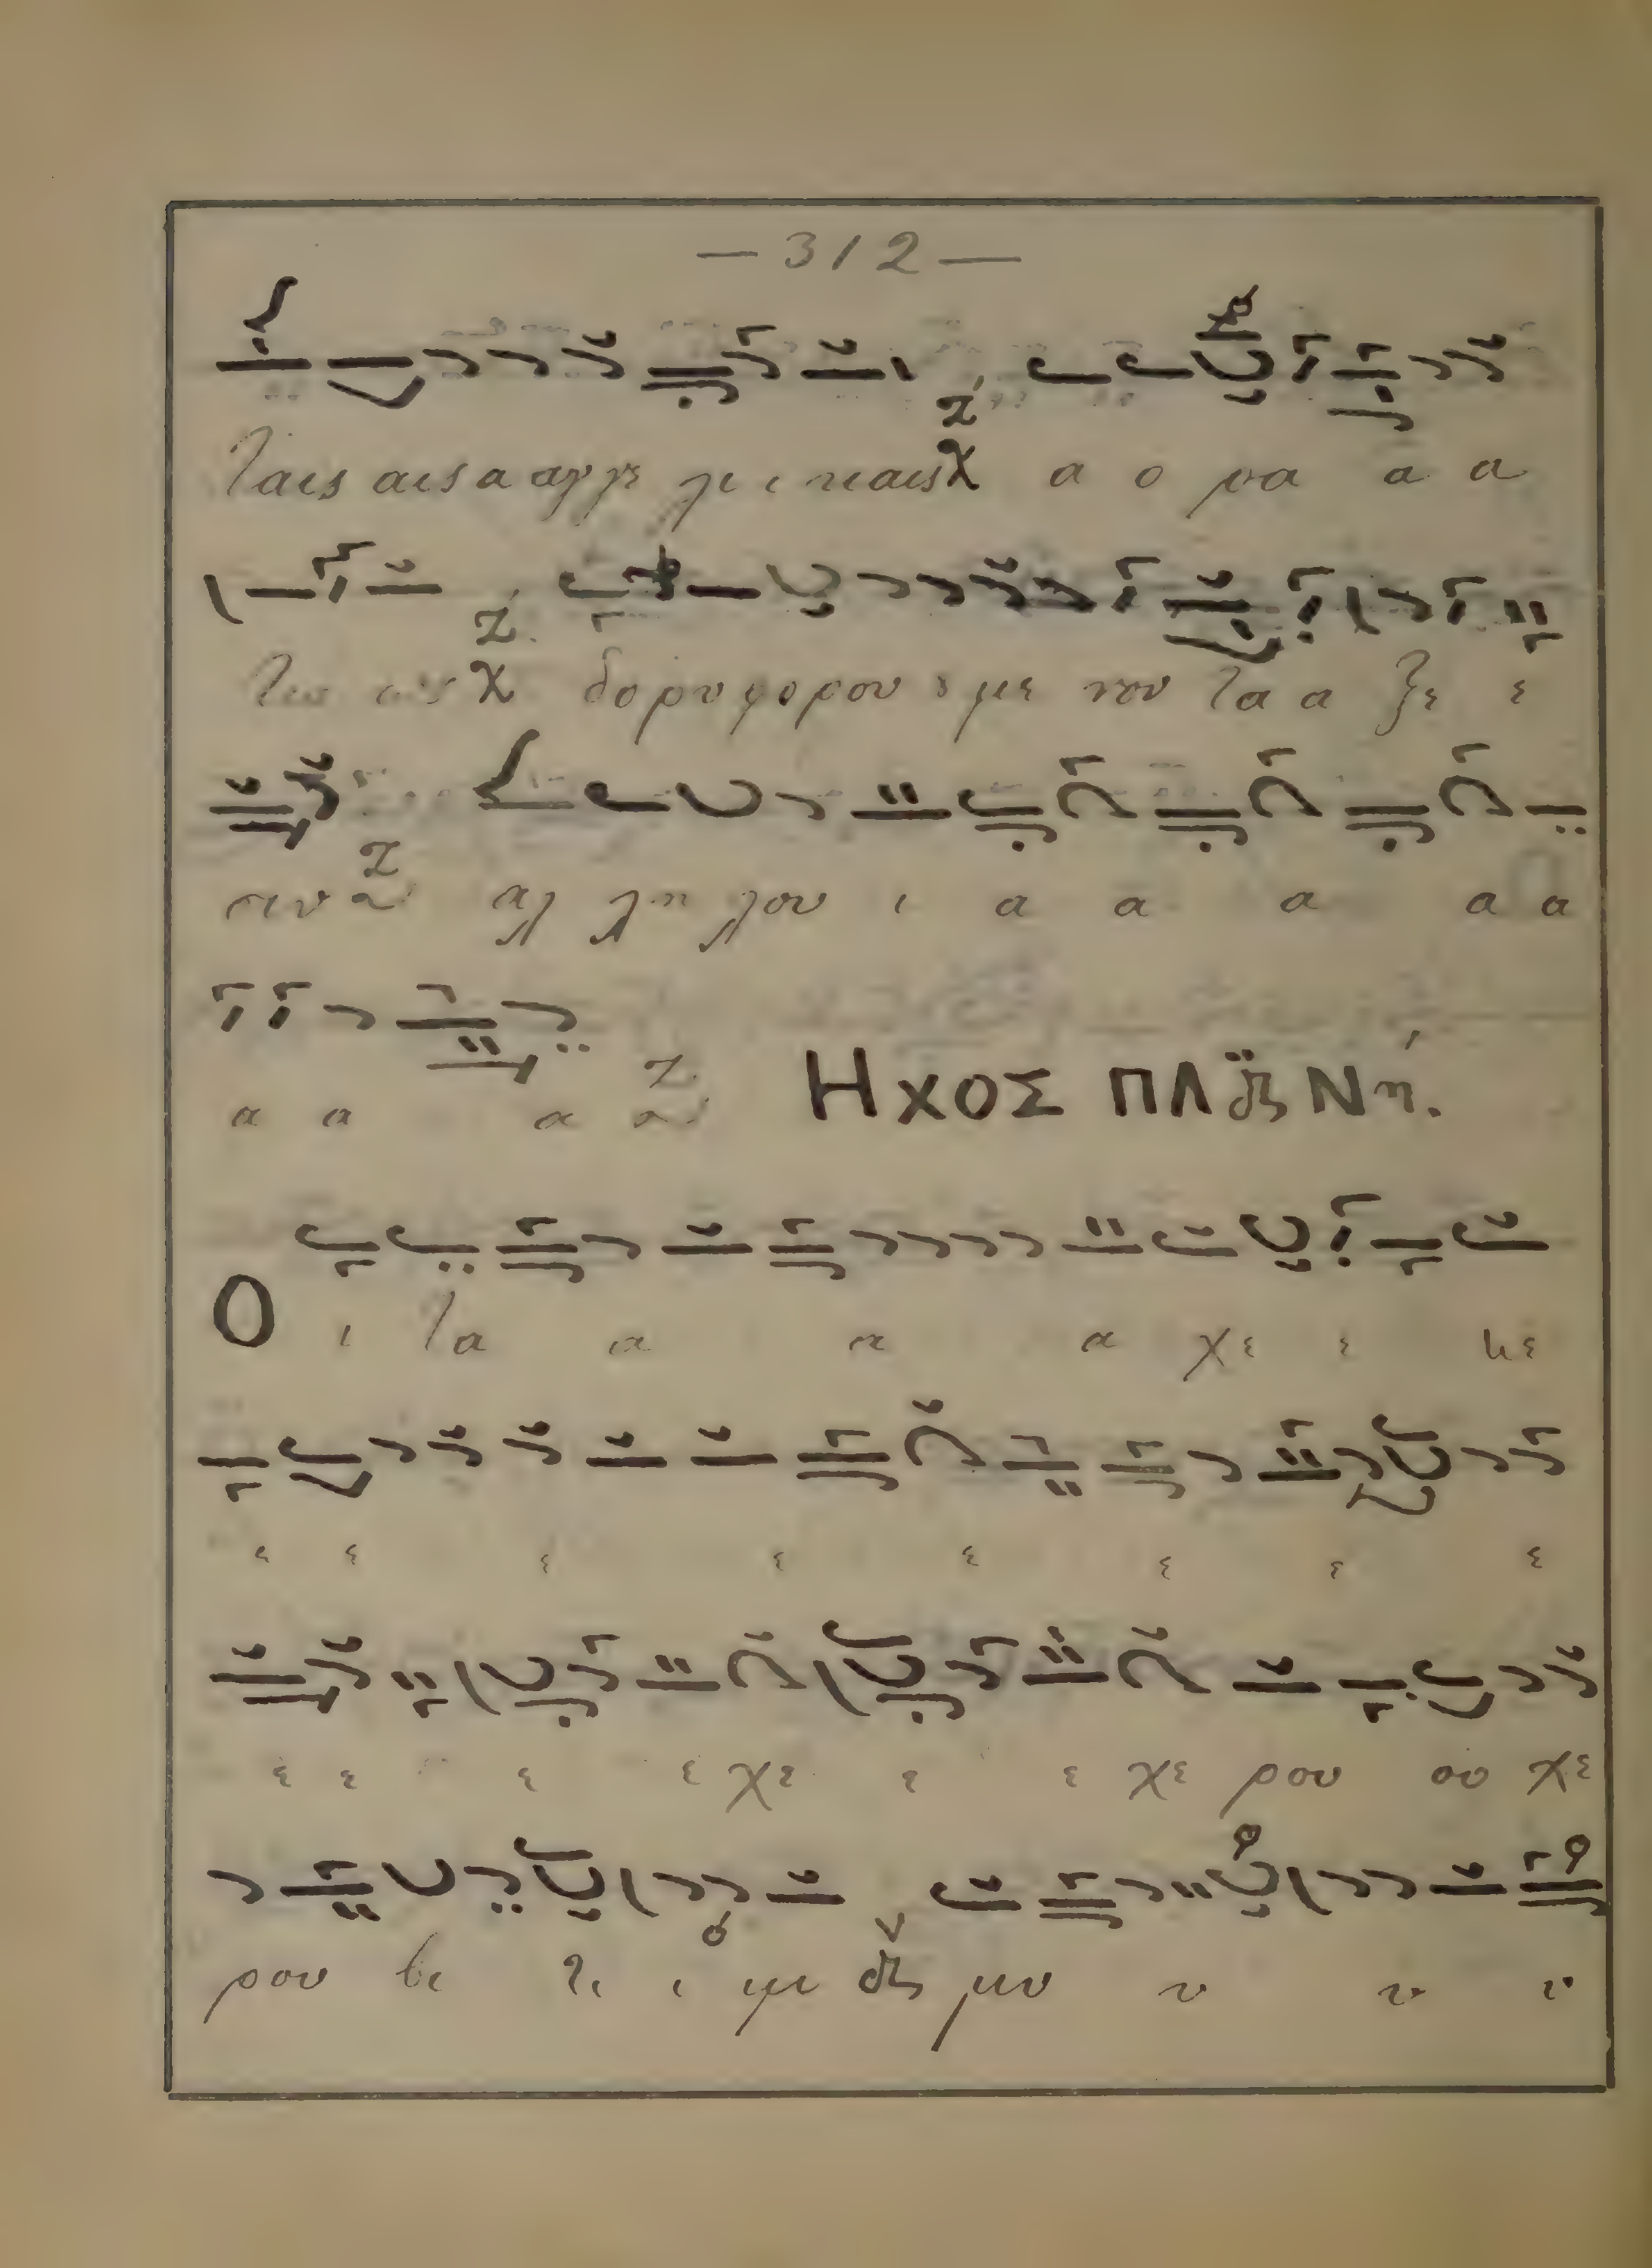 — 312 —
ταις αις α αγγε λι ι καις α ο ρα α α
τω ως δο ρυ φο ρου ου με νον τα α ξε ε
σιν αλ λη λου ι α α α α α
α α α ΗΧΟΣ ΠΛ Δ Νη.
Ο ι τα α α α χε ε κε
ε ε ε ε ε ε ε ε
ε ε ε ε χε ε ε χε ρου ου χε
ρου βι τι ι μυ υ υ υ